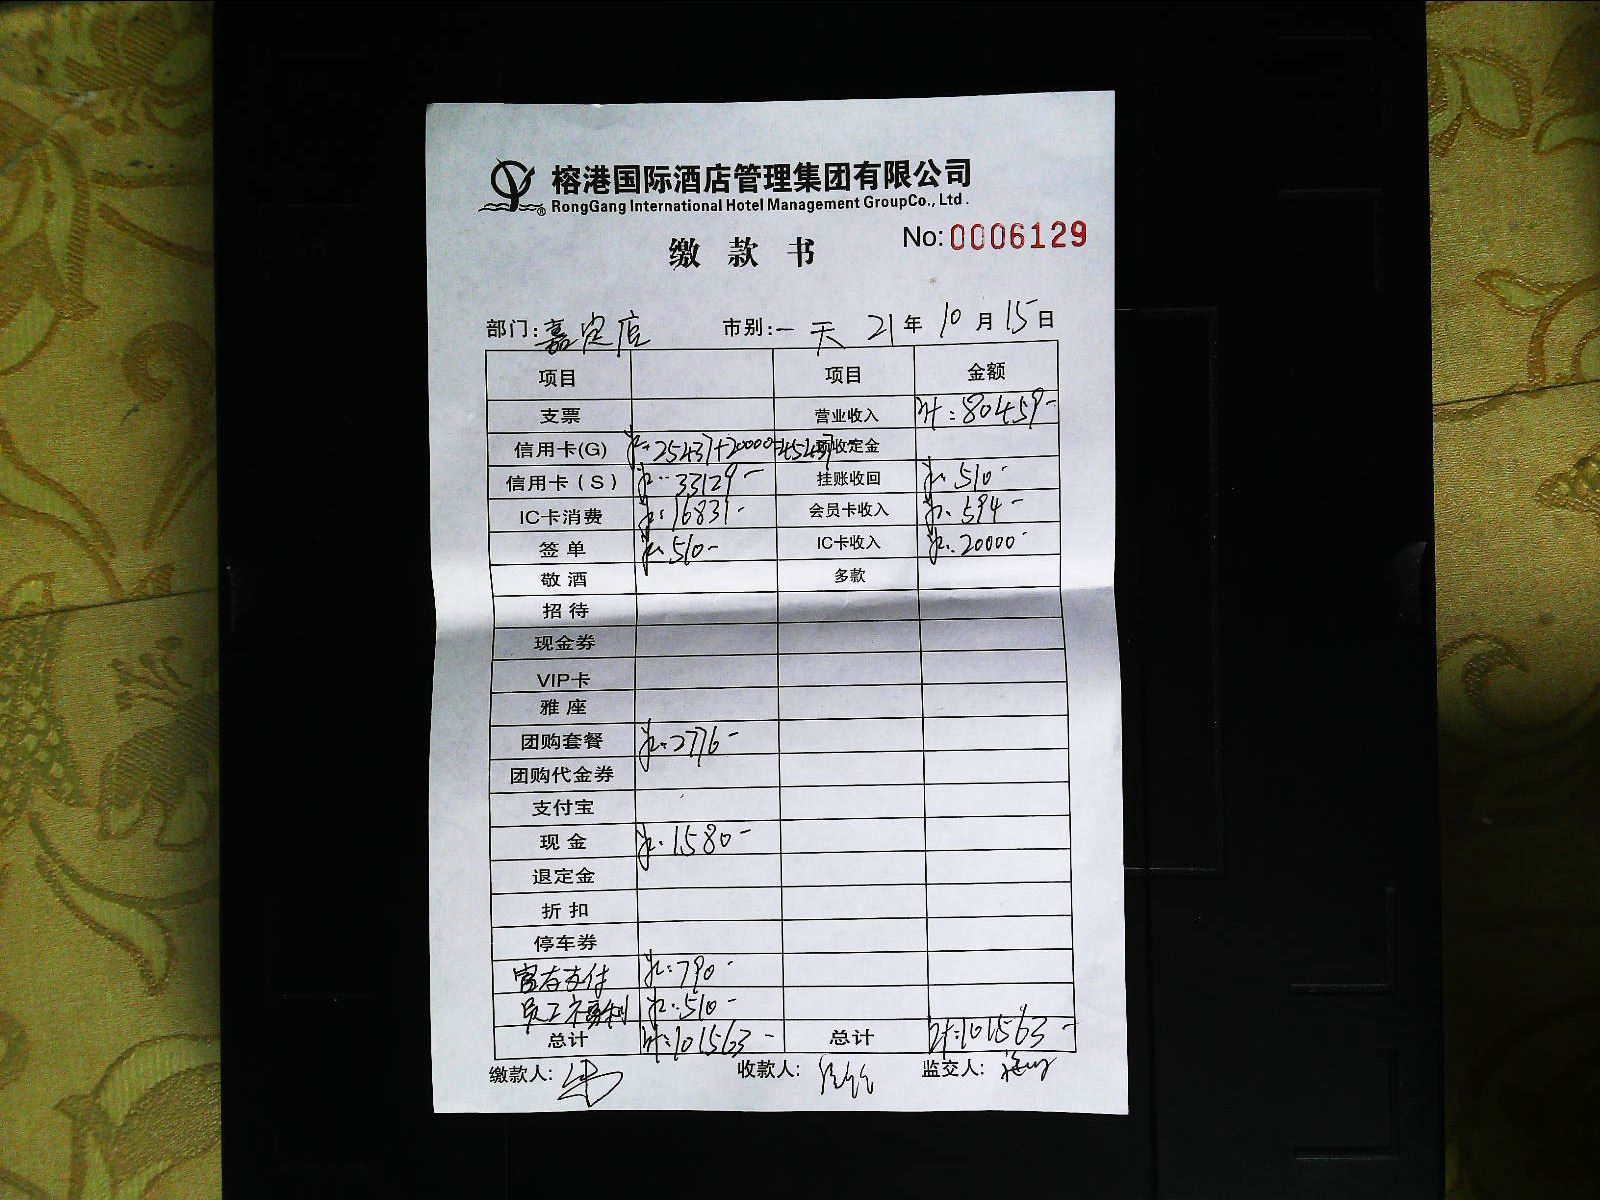 榕港国际酒店管理集团有限公司
® RongGang International Hotel Management GroupCo., Ltd.
缴款书 No: 0006129
部门: 嘉定店 市别: 一天 21年 10月 15日
项目 项目 金额
支票 营业收入 计: 80459-
信用卡(G) 25437+20000=45437 预收定金
信用卡(S) 33129- 挂账收回 510-
IC卡消费 16831- 会员卡收入 594-
签单 510- IC卡收入 20000-
敬酒 多款
招待
现金券
VIP卡
雅座
团购套餐 2776-
团购代金券
支付宝
现金 1580-
退定金
折扣
停车券
支付 790-
员工福利 510-
总计 计: 101563- 总计 计: 101563-
缴款人: 收款人: 监交人: